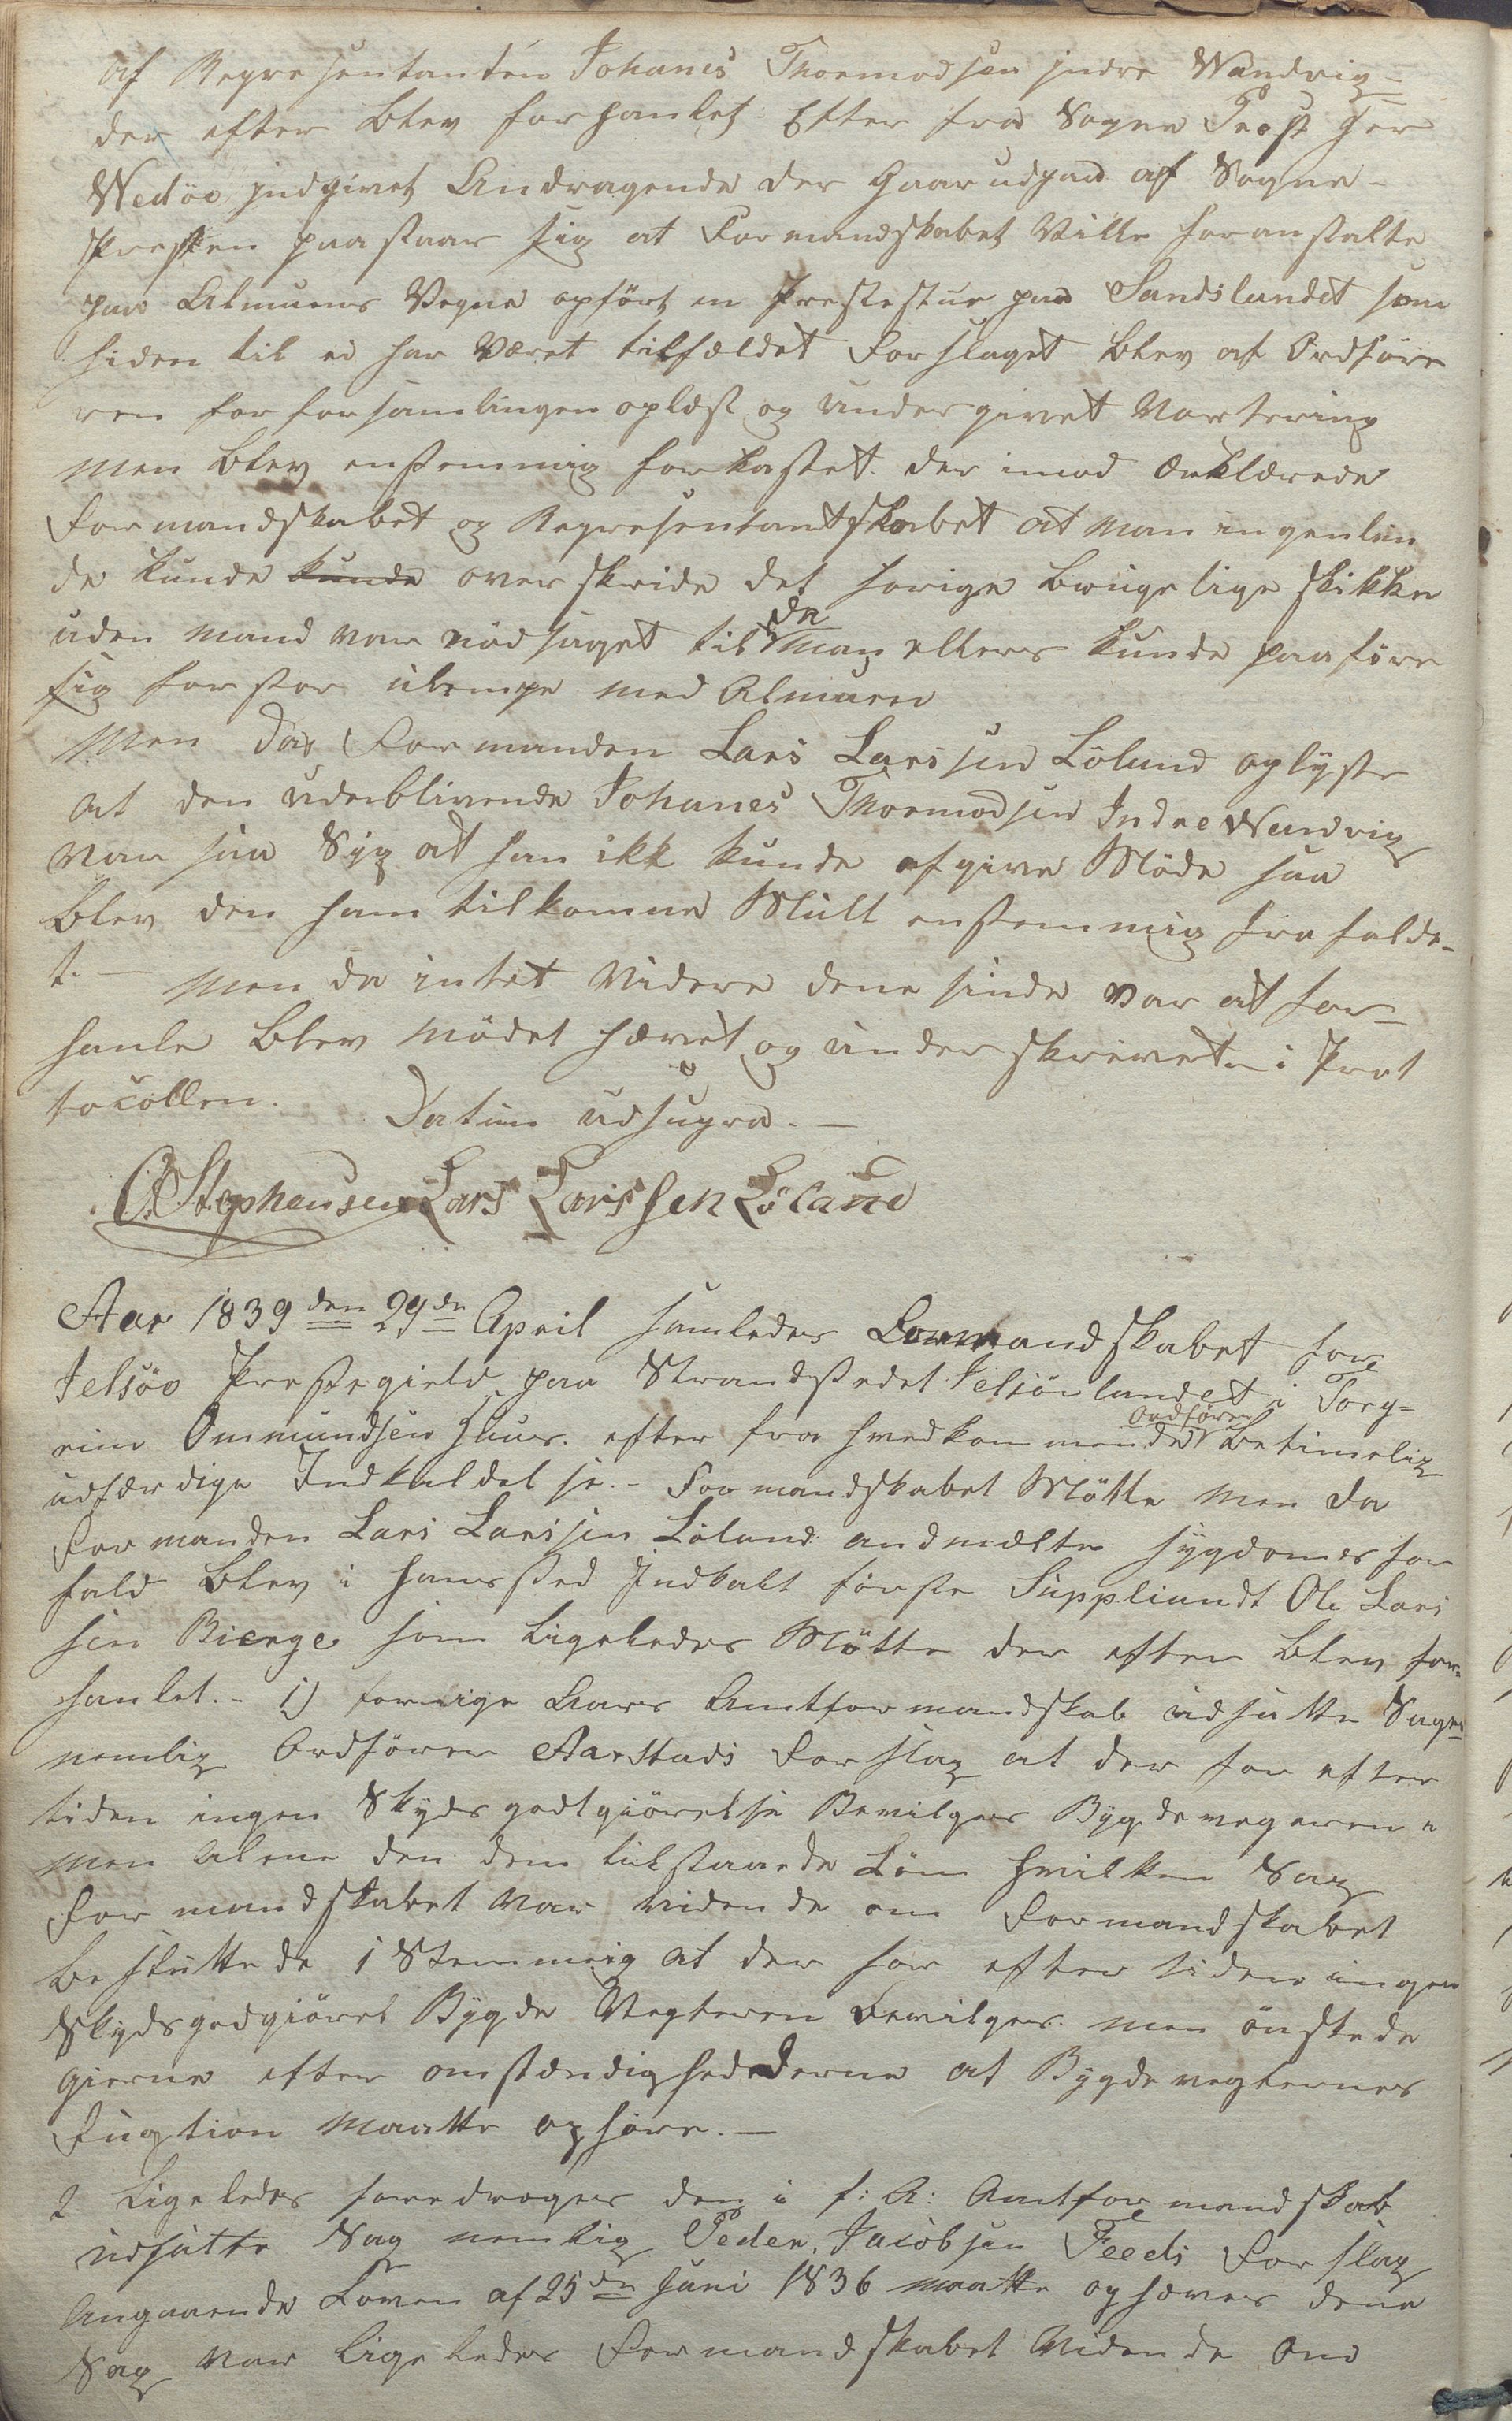 af Representanten Johanes Thormodsen indre Wandvig
der efter blev forhanlet Efter fra Sogne Prest Her
Wedöe indgivet Andragende der gaar udpaa af Sogne-
Presten paastaar sig at Formandskabet Ville foranstalte
paa Almuens Vegne opfört en Prestestue paa Sandslandet som
hiden til ei har Været tilfældet Forslaget blev af Ordföre
ren for forsamlingen oplæst og undergivet Vortering
men blev enstemmig forkastet. der imod Erklærede
Formandskabet og Representantskabet at man ingenlun
de kunde kunde overskride det forige brugelige skikke
uden mand var nödsaget til da man ellers kunde paaföre
sig for stor ulempe med Almuen
Men da Formanden Lars Larsen Lölund oplyste
at den udeblivende Johanes Thormodsen Indre Wandvig
var saa Syg at han ikk kunde afgive Möde saa
blev den ham tilkomne Mult enstemmig frafalde-
t. — Men da intet Videre dene sinde var at for-
hanle blev mödet hævet og underskrevet i Prot
tocollen. Datum udsupra. —
O. Stephansen Lars Larssen Löland
Aar 1839 den 29de April samledes Formandskabet for
Jelsöe Prestegield paa Strandstedet Jelsöelandet i Torg-
eim Ommundsen Huus. efter fra hvedkommende Ordförer betimelig
udfærdige Indkaldelse. - Formandskabet Mötte men da
Formanden Lars Larsen Löland andmelte sygdomes for
fald blev i hans sted Indkalt förste Suppliandt Ole Lars
sen Bierge som Ligeledes Mötte der efter blev for-
hanlet. - 1) forrige Aars Amtformandskab udsatte Sager
nemlig Ordförer Aarstads Forslag at der for efter
tiden ingen Skydsgodtgiörelse Bevilges Bygdevegteren
men alene den dem tilstaaede Lön hvilken Sag
Formandskabet var vidende om Formandskabet
besluttede i Stemmig at der for efter tiden ingen
Skydsgodgiörel Bygde Vegteren bevilges. men önskede
gierne efter omstændighedederne at Bygdevegternes
Fugtion maatte ophöre. —
2 Ligeledes foredroges den i f: A: Amtformandskab
udsatte Sag nemlig Peder Jacobsen Feeds Forslag
Angaaende Loven af 25de Juni 1836 maatte ophæves dene
Sag var ligeledes Formandskabet Vidende Om